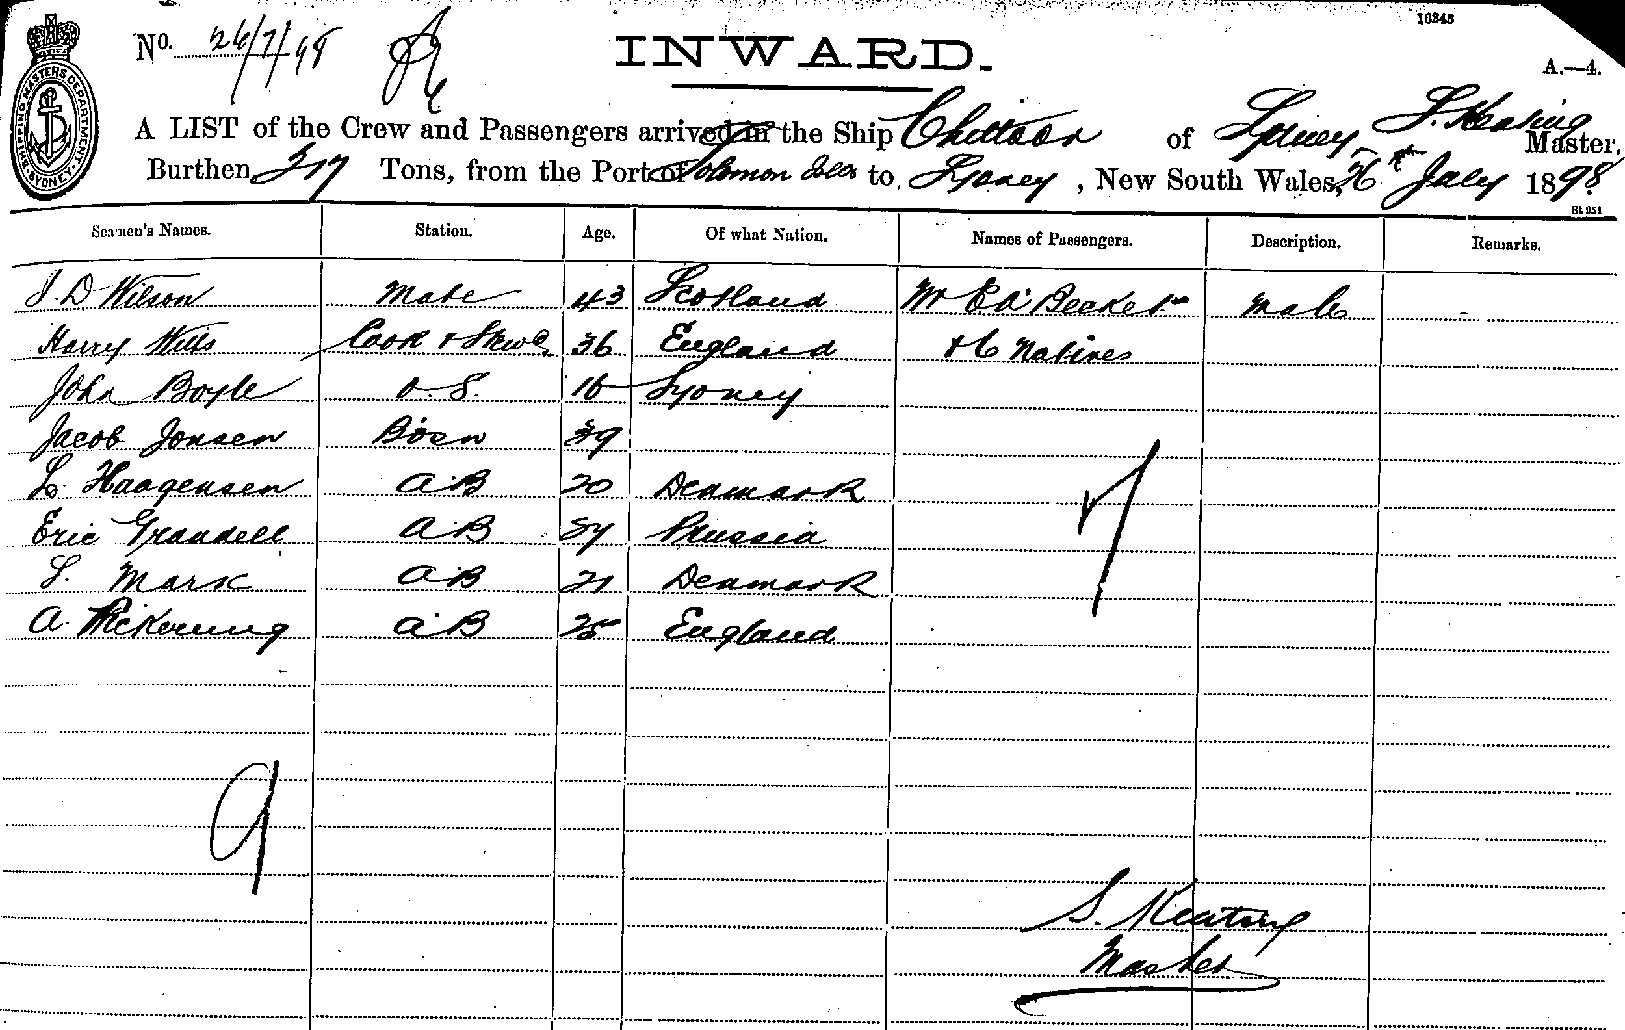 10345
No. 26/7/98
INWARD.
A.—4.
SHIPPING MASTERS DEPARTMENT SYDNEY
A LIST of the Crew and Passengers arrived in the Ship Chittoor of Sydney S. Keating Master,
Burthen 317 Tons, from the Port of Solomon Isles to Sydney, New South Wales, 26th July 1898
St 951
Seamen's Names. Station. Age. Of what Nation. Names of Passengers. Description. Remarks.
J. D Wilson Mate 43 Scotland Mr Beckett Male
Harry Wills Cook & Stwd 36 England & 6 Natives
John Boyle O.S. 16 Sydney
Jacob Jonsen Bosn 39
L. Haagensen A.B 20 Denmark
Eric Grandell A.B Russia
S. Mark A.B 21 Denmark
A. Pickering A.B 25 England
7
9
S. Keating
Master